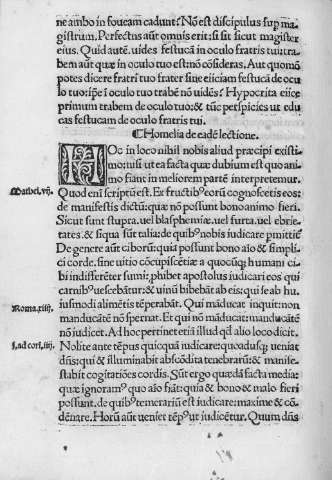 ne ambo in foveam cadunt? Nõ est discipulus sup ma
gistrum. Perfectus aũt omnis erit: si sit sicut magister
eius. Quid autẽ. vides festucã in oculo fratris tui: tra
bem aũt quæ in oculo tuo est nõ cõsideras. Aut quomõ
potes dicere fratri tuo frater sine eiiciam festucã de ocu
lo tuo: ipse ĩ oculo tuo trabẽ nõ vidẽs? Hypocrita eiice
primum trabem de oculo tuo: & tũc perspicies ut edu
cas festucam de oculo fratris tui.
¶ Homelia de eadẽ lectione.
HOc in loco nihil nobis aliud præcipi existi
mo: nisi ut ea facta quæ dubium est quo ani
mo fiant in meliorem partẽ interpretemur.
Matthei. vij. Quod eni scriptũ est. Ex fructibꝰ eorũ cognoscetis eos:
de manifestis dictũ: quæ nõ possunt bono animo fieri.
Sicut sunt stupra. vel blasphemiæ. vel furta. vel ebrie
tates: & siqua sũt talia: de quibꝰ nobis iudicare pmittit̃
De genere aũt ciborũ: quia possunt bono aĩo & simpli
ci corde. sine vitio cõcupiscẽtiæ a quocũqꝫ humani ci
bi indifferẽter sumi: phibet apostolus iudicari eos qui
carnibꝰ vescebãtur: & uinũ bibebãt ab eis: qui se ab hu
iusmodi alimẽtis tẽperabãt. Qui mãducat inquit: non
Roma. xiiij. manducatẽ nõ spernat. Et qui nõ mãducat: manducatẽ
nõ iudicet. Ad hoc pertinet etia illud qd alio loco dicit.
j. ad cori. iiij. Nolite ante tẽpus quicquã iudicare: quoadusqꝫ ueniat
dñs: qui & illuminabit abscõdita tenebrarũ: & manife
stabit cogitatiões cordis. Sũt ergo quædã facta media:
quæ ignoramꝰ quo aĩo fiãt: quia & bono & malo fieri
possunt. de quibꝰ temerariũ est iudicare: maxime & cõ
dẽnare. Horũ aũt ueniet tẽpꝰ ut iudicẽtur. Quum dñs